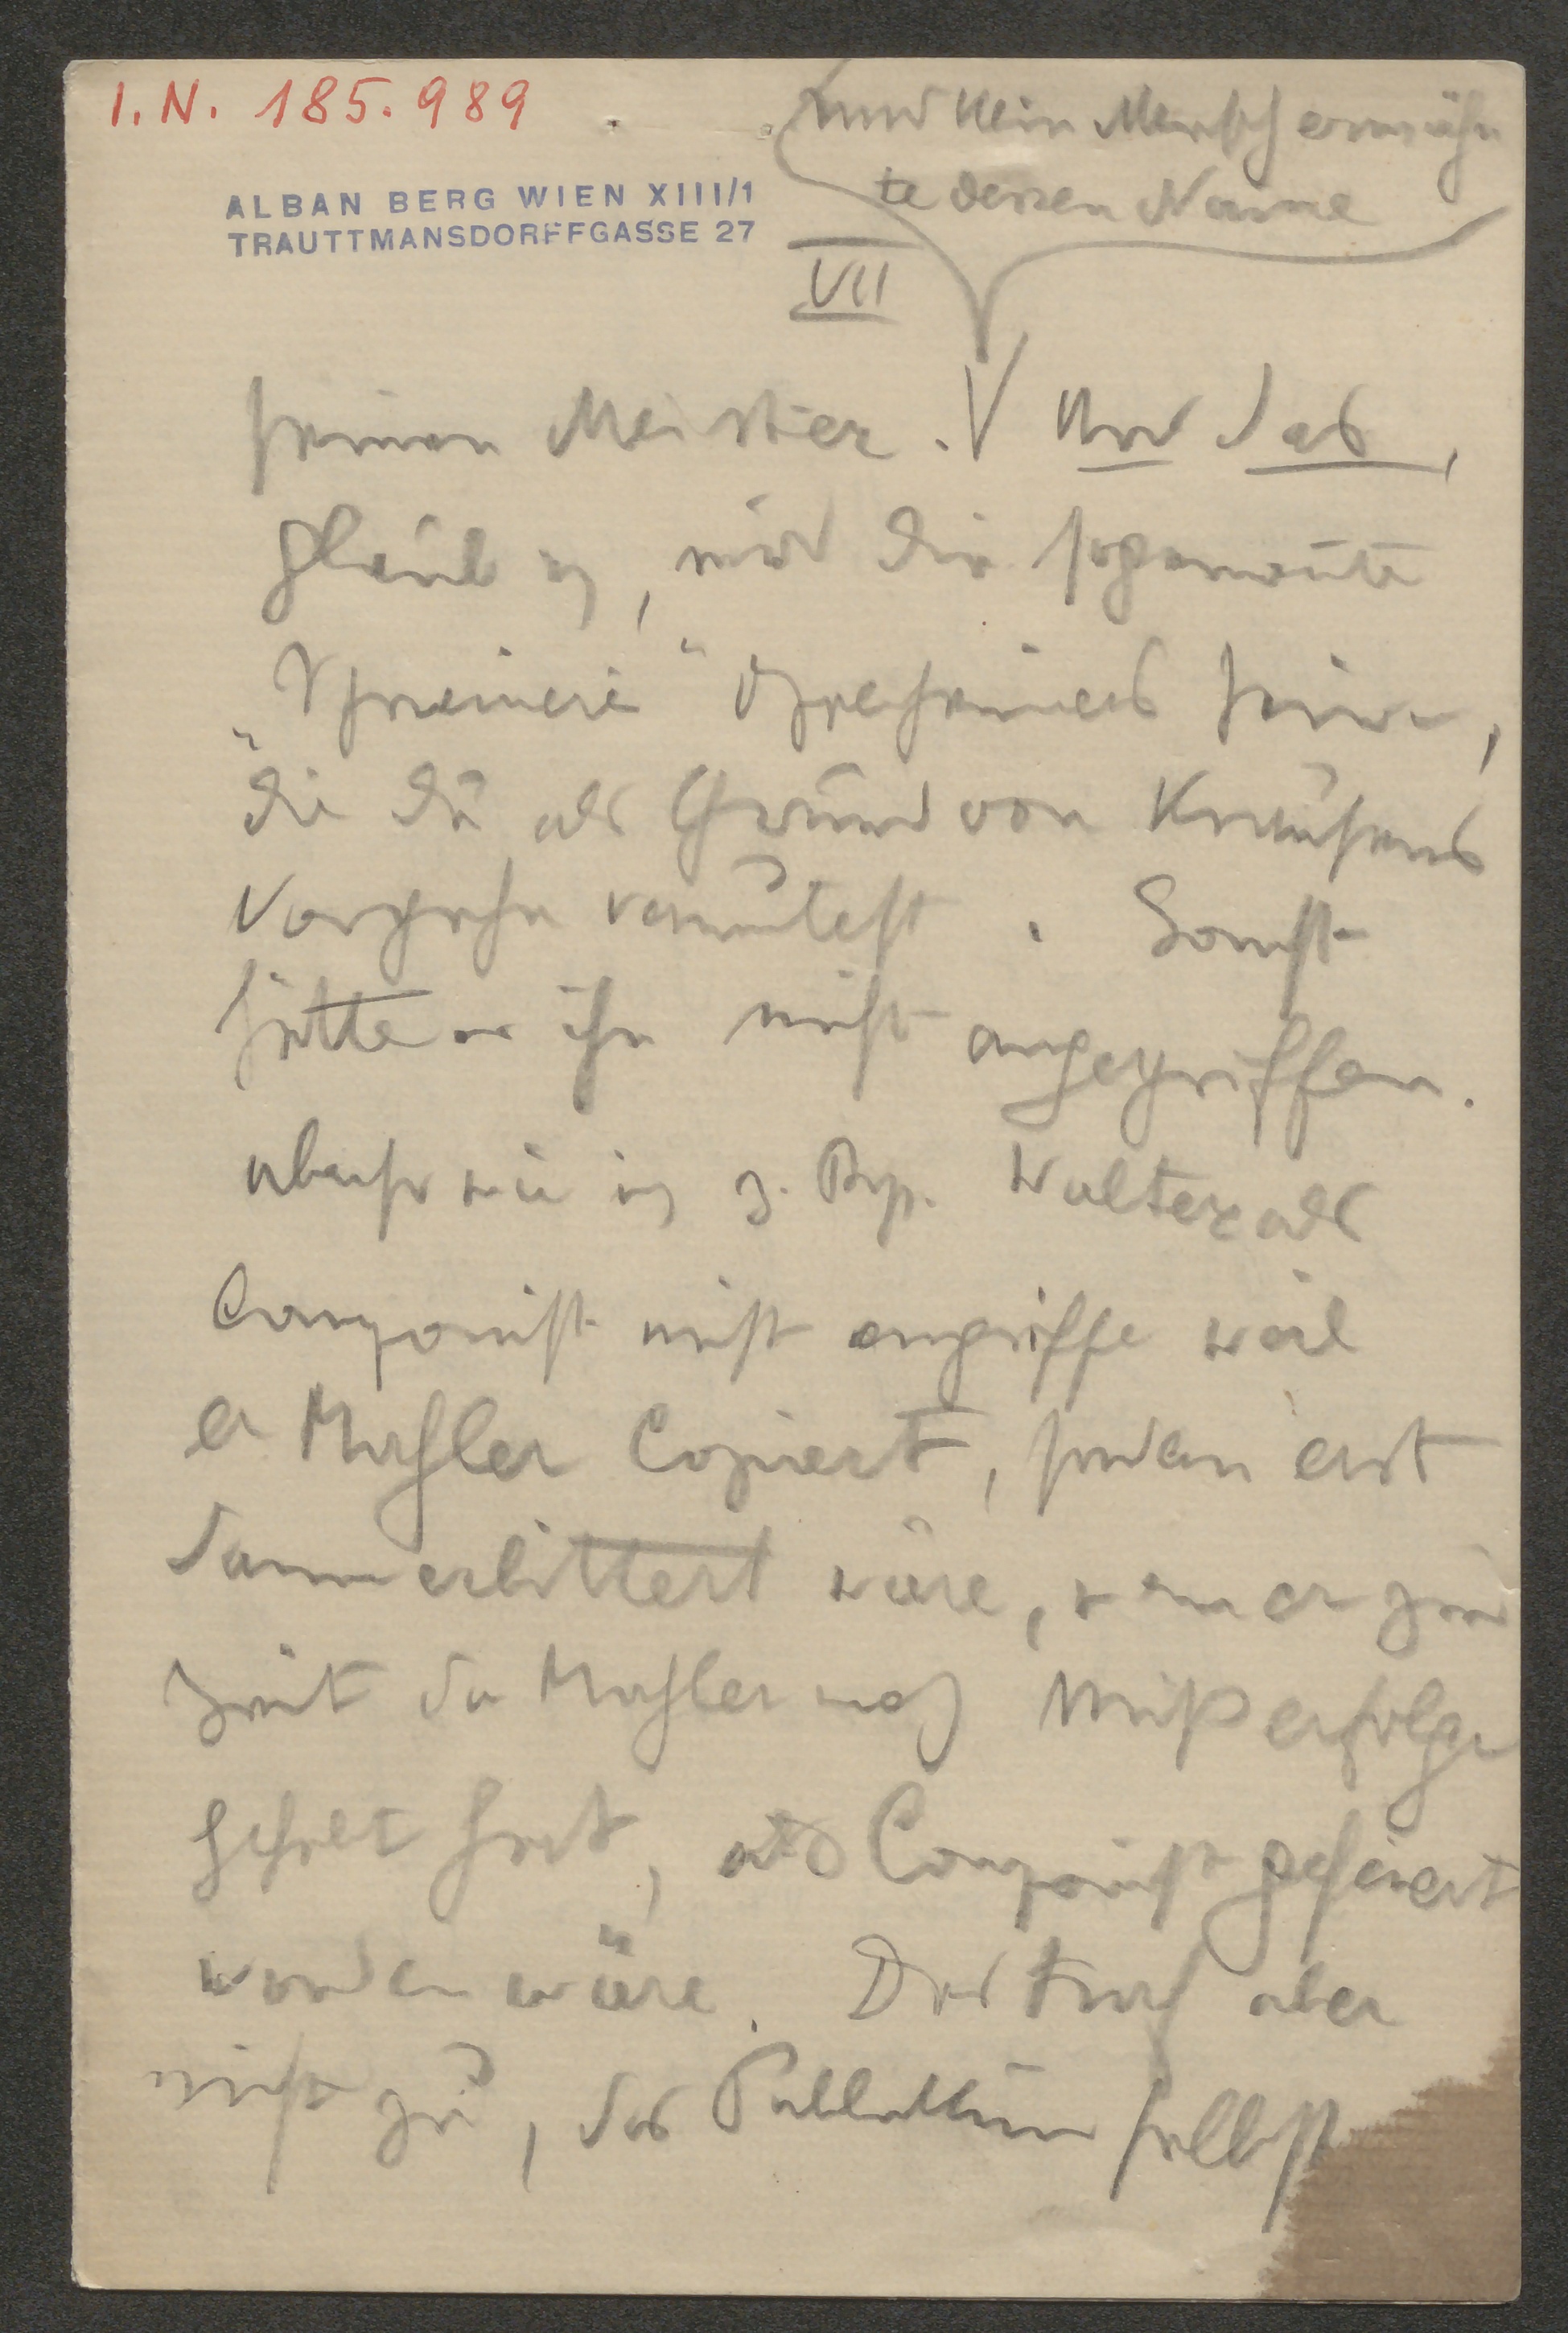 I. N. 185.989
und kein Mensch erwähn
te dessen Name
ALBAN BERG WIEN XIII/1
TRAUTTMANSDORFFGASSE 27
VII
seinen Meister. Und das,
glaub ich, wird die sogenannte
„ " sein,
die du als Grund von Krausens
Vorgehn vermutest. Sonst
hätte er ihn nicht angegriffen.
ebenso wie ich z. Bsp. Walter als
Componist nicht angriffe weil
er Mahler Copiert, sondern erst
dann erbittert wäre, wenn er zur
Zeit da Mahler noch Mißerfolge
gehabt hat, als Componist gefeiert
worden wäre. Das traf aber
nicht zu, das Publikum selbst